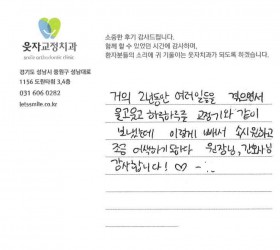 소중한 후기 감사드립니다.
함께 할 수 있었던 시간에 감사하며,
환자분들의 소리에 귀 기울이는 웃자치과가 되도록 하겠습니다.
웃자교정치과
smile orthodontic clinic
경기도 성남시 중원구 성남대로
1156 도원타워 3,4층
031 606 0282
letssmile.co.kr
거의 2년동안 여러일들을 겪으면서
울고웃고 하루하루를 교정기와 같이
보냈는데 이렇게 빼서 속시원하고
조금 어색하기도하다 원장님, 간호사님
감사합니다! ♡